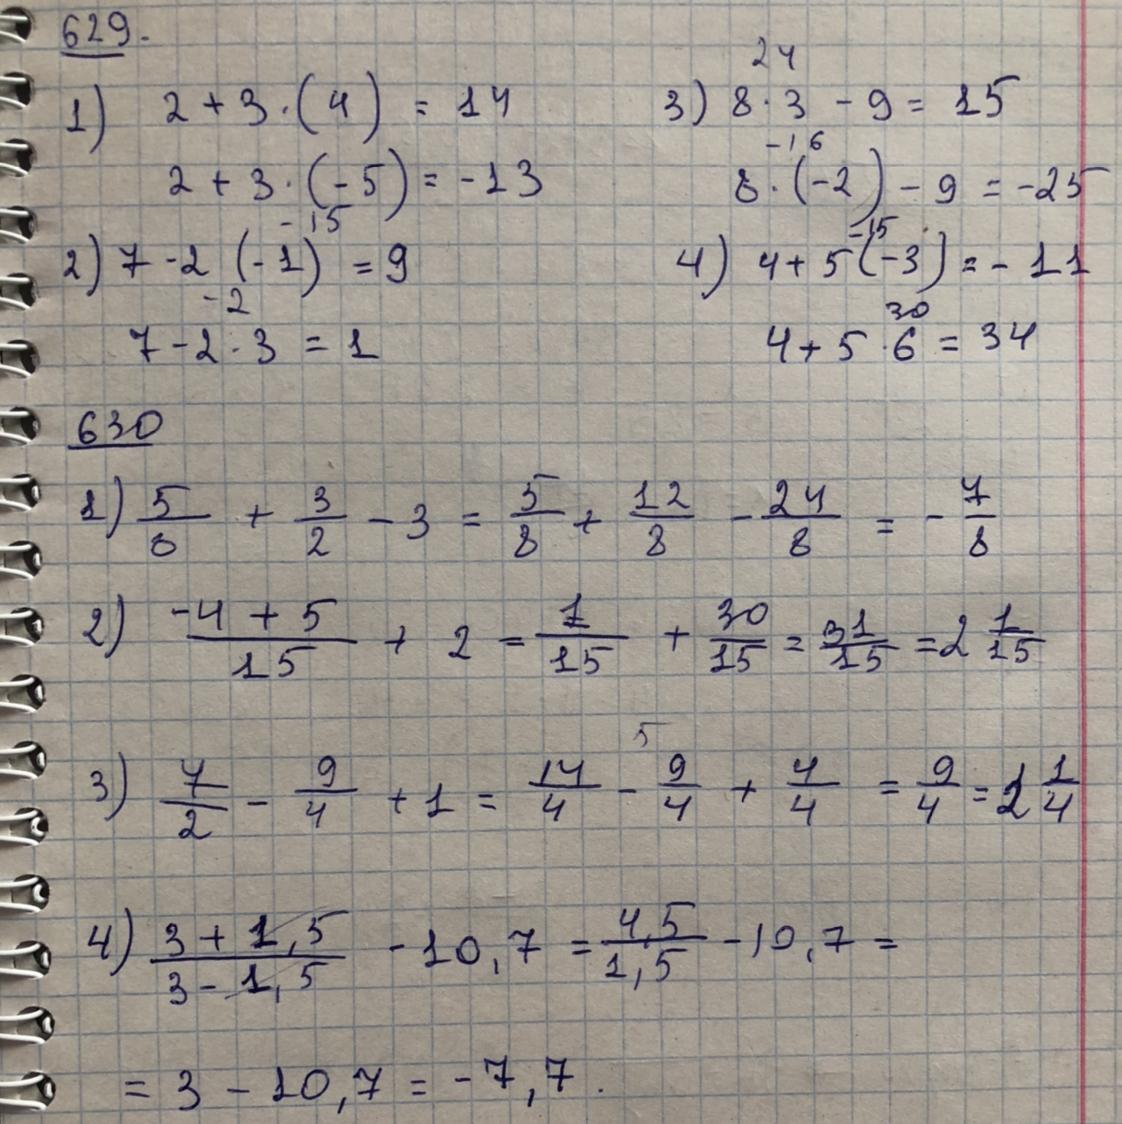 629.
1) 2 + 3 · (4) = 14
2 + 3 · (-5) = -13
-15
2) 7 - 2 (-1) = 9
-2
7 - 2 · 3 = 1
24
3) 8 · 3 - 9 = 15
-16
8 · (-2) - 9 = -25
-15
4) 4 + 5 (-3) = - 11
30
4 + 5 · 6 = 34
630
1) 5/8 + 3/2 - 3 = 5/8 + 12/8 - 24/8 = - 7/8
2) (-4 + 5)/15 + 2 = 1/15 + 30/15 = 31/15 = 2 1/15
5
3) 7/2 - 9/4 + 1 = 14/4 - 9/4 + 4/4 = 9/4 = 2 1/4
4) (3 + 1,5)/(3 - 1,5) - 10,7 = 4,5/1,5 - 10,7 =
= 3 - 10,7 = -7,7.